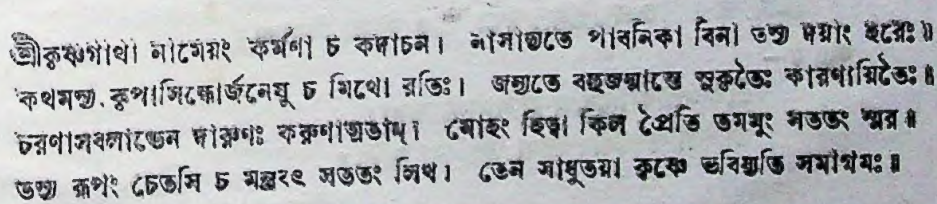 শ্রীকৃষ্ণগাথা নামেয়ং কর্মণা চ কদাচন। নাসাদ্যতে পাবনিকা বিনা তস্য দয়াং হরেঃ॥
কথমস্য কৃপাসিন্ধোর্জনেষু চ মিথো রতিঃ। জন্যতে বহুজন্মান্তে সুকৃতৈঃ কারণান্বিতৈঃ॥
চরণাসবলাভেন দারুণঃ করুণাত্মতাম্। মোহং হিত্বা কিল প্রৈতি তমমুং সততং স্মর॥
তস্য রূপং চেতসি চ মন্ত্রবৎ সততং লিখ। তেন সাধুতয়া কৃষ্ণে ভবিষ্যতি সমাগমঃ॥